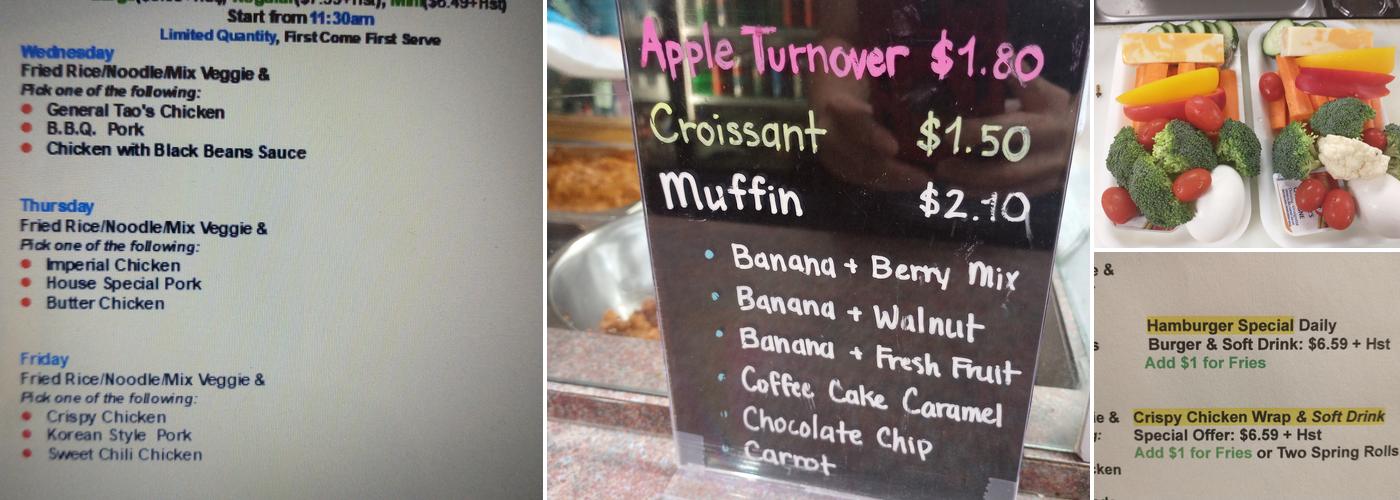 Start from 11:30am
Limited Quantity, First Come First Serve
Wednesday
Fried Rice/Noodle/Mix Veggie &
Pick one of the following:
General Tao's Chicken
B.B.Q. Pork
Chicken with Black Beans Sauce
Thursday
Fried Rice/Noodle/Mix Veggie &
Pick one of the following:
Imperial Chicken
House Special Pork
Butter Chicken
Friday
Fried Rice/Noodle/Mix Veggie &
Pick one of the following:
Crispy Chicken
Korean Style Pork
Sweet Chili Chicken
Apple Turnover $1.80
Croissant $1.50
Muffin $2.10
Banana + Berry Mix
Banana + Walnut
Banana + Fresh Fruit
Coffee Cake Caramel
Chocolate Chip
Carrot
Hamburger Special Daily
Burger & Soft Drink: $6.59 + Hst
Add $1 for Fries
Crispy Chicken Wrap & Soft Drink
Special Offer: $6.59 + Hst
Add $1 for Fries or Two Spring Rolls